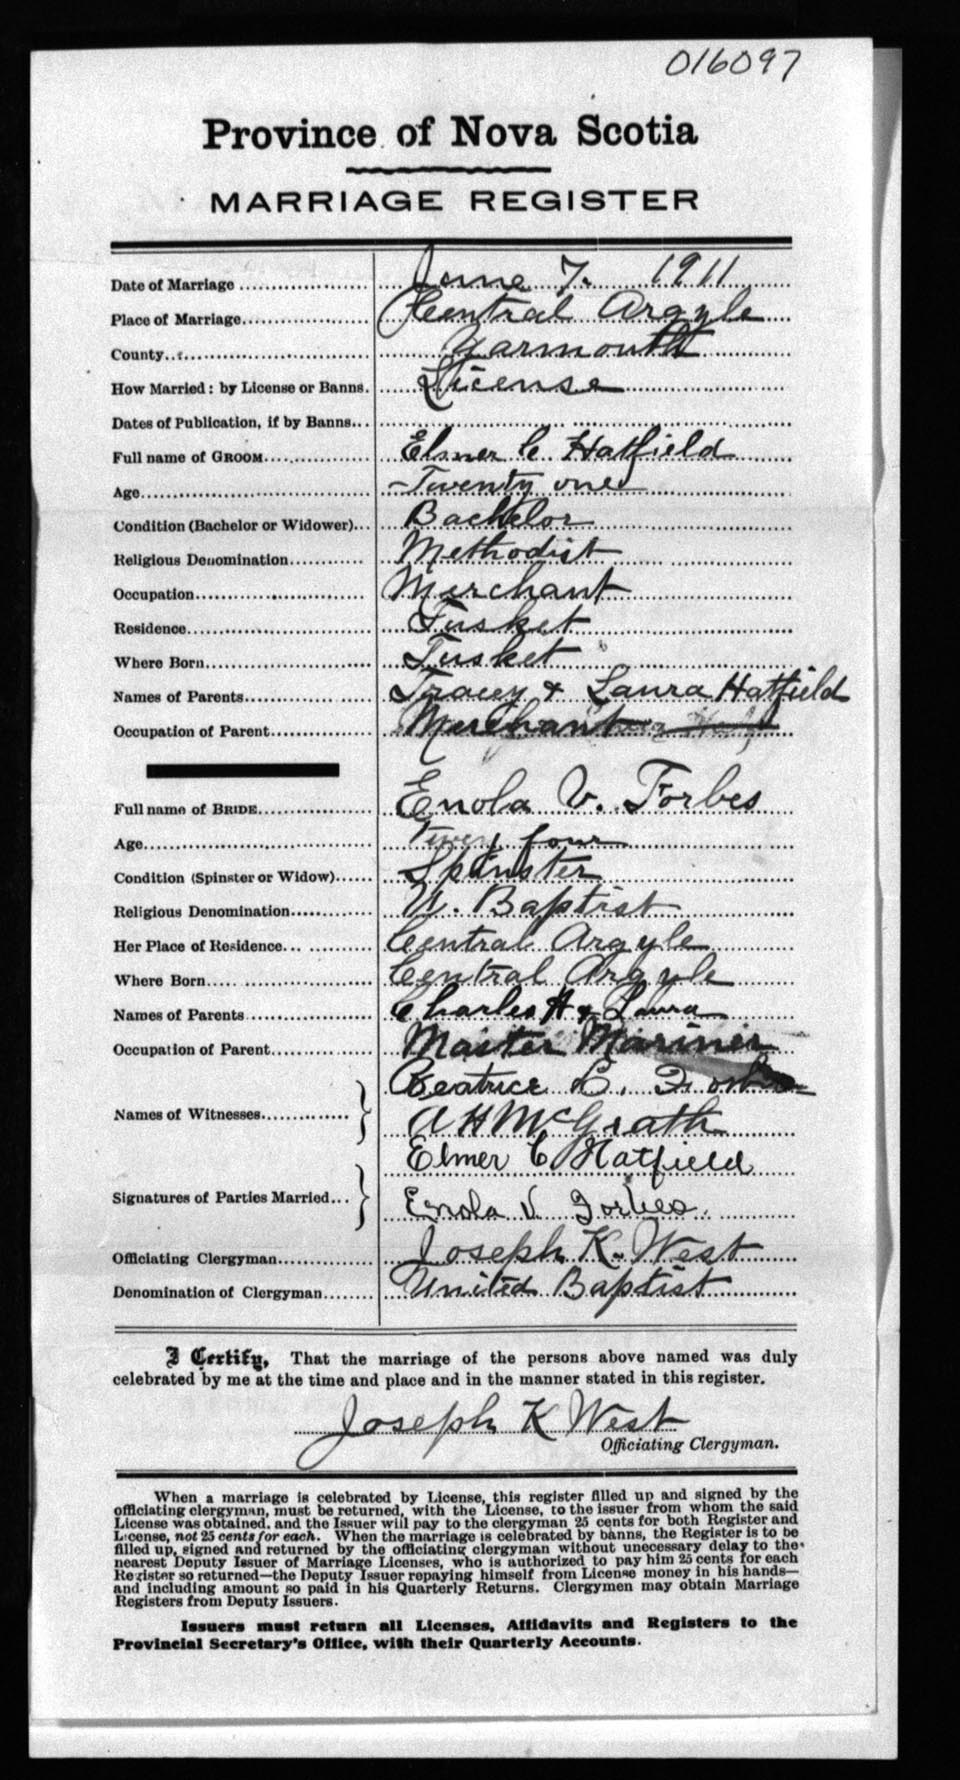 016097
Province of Nova Scotia
MARRIAGE REGISTER
Date of Marriage June 7. 1911
Place of Marriage Central Argyle
County Yarmouth
How Married: by License or Banns. License
Dates of Publication, if by Banns
Full name of GROOM Elmer C Hatfield
Age Twenty one
Condition (Bachelor or Widower) Bachelor
Religious Denomination Methodist
Occupation Merchant
Residence Tusket
Where Born Tusket
Names of Parents Tracey & Laura Hatfield
Occupation of Parent Merchant
Full name of BRIDE Enola V. Forbes
Age four
Condition (Spinster or Widow) Spinster
Religious Denomination U. Baptist
Her Place of Residence Central Argyle
Where Born Central Argyle
Names of Parents Charles H & Laura
Occupation of Parent Master Mariner
Names of Witnesses Beatrice E. Forbes
A H McGrath
Signatures of Parties Married Elmer C Hatfield
Enola V Forbes.
Officiating Clergyman Joseph K. West
Denomination of Clergyman United Baptist
I Certify, That the marriage of the persons above named was duly
celebrated by me at the time and place and in the manner stated in this register.
Joseph K West
Officiating Clergyman.
When a marriage is celebrated by License, this register filled up and signed by the
officiating clergyman, must be returned, with the License, to the issuer from whom the said
License was obtained, and the Issuer will pay to the clergyman 25 cents for both Register and
License, not 25 cents for each. When the marriage is celebrated by banns, the Register is to be
filled up, signed and returned by the officiating clergyman without unecessary delay to the
nearest Deputy Issuer of Marriage Licenses, who is authorized to pay him 25 cents for each
Register so returned—the Deputy Issuer repaying himself from License money in his hands—
and including amount so paid in his Quarterly Returns. Clergymen may obtain Marriage
Registers from Deputy Issuers.
Issuers must return all Licenses, Affidavits and Registers to the
Provincial Secretary's Office, with their Quarterly Accounts.